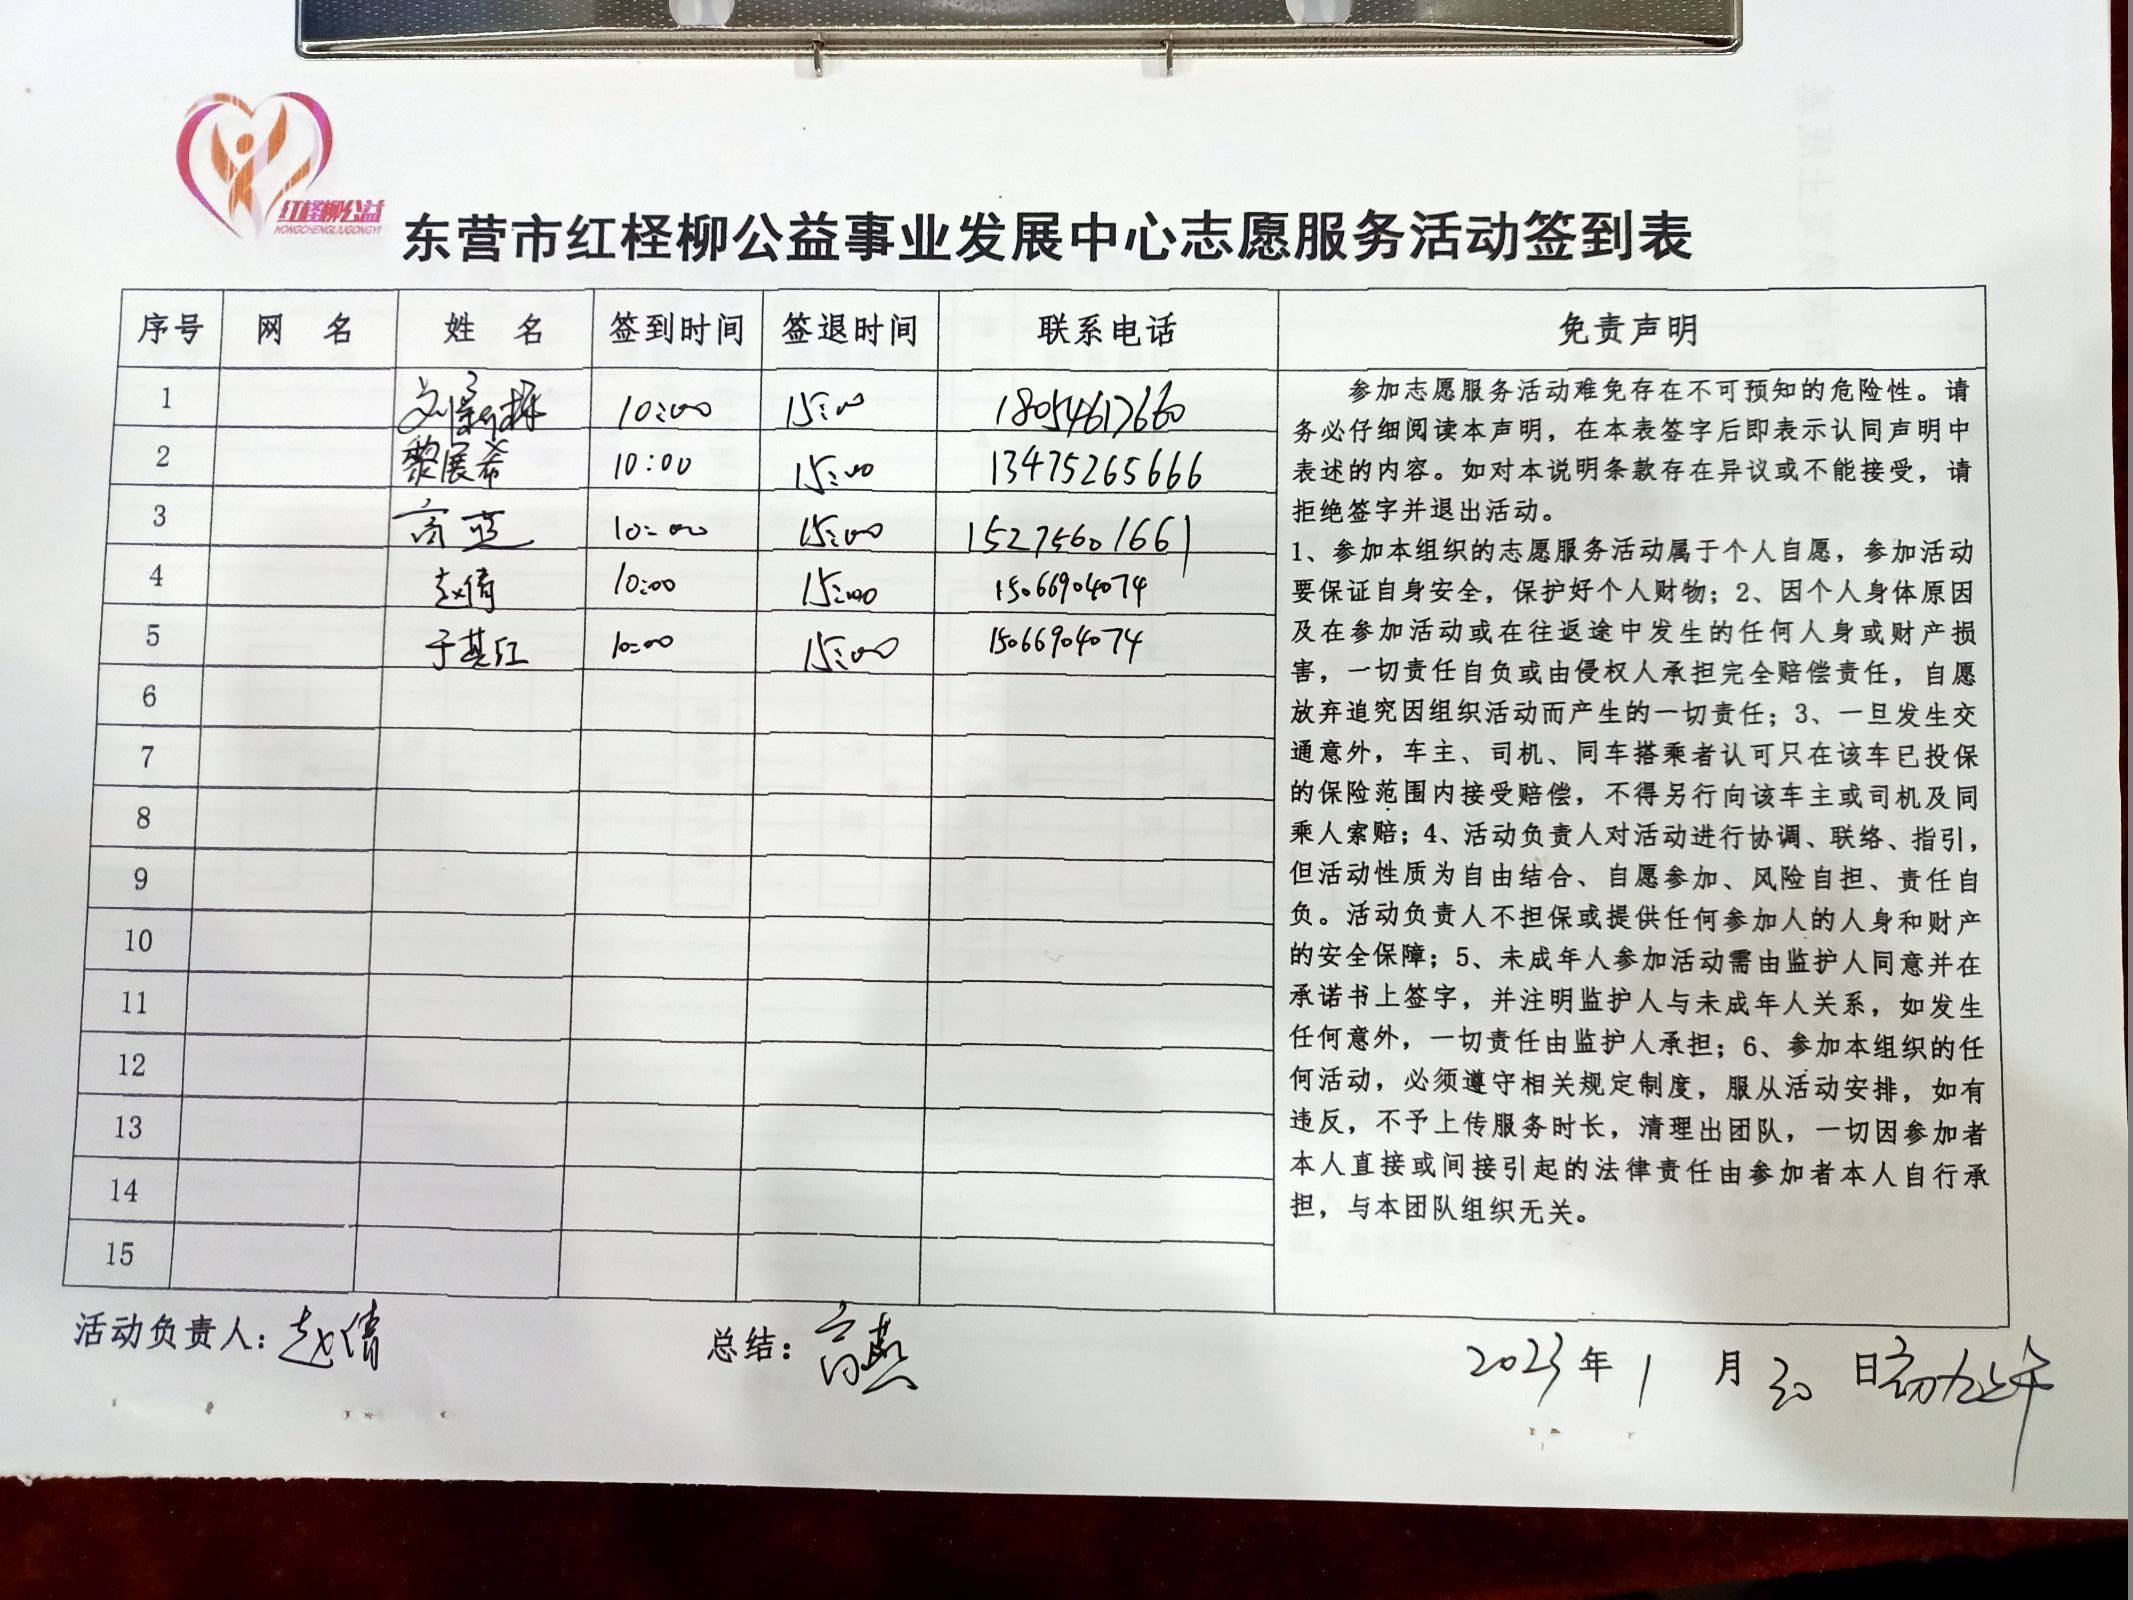 红柽柳公益
HONGCHENGLIUGONGYI
东营市红柽柳公益事业发展中心志愿服务活动签到表
序号 网 名 姓 名 签到时间 签退时间 联系电话 免责声明
1 10:00 15:00 18054617660
2 黎展希 10:00 15:00 13475265666
3 高蓝 10:00 15:00 15275601661
4 赵倩 10:00 15:00 15066904074
5 于其红 10:00 15:00 15066904074
6
7
8
9
10
11
12
13
14
15
参加志愿服务活动难免存在不可预知的危险性。请
务必仔细阅读本声明，在本表签字后即表示认同声明中
表述的内容。如对本说明条款存在异议或不能接受，请
拒绝签字并退出活动。
1、参加本组织的志愿服务活动属于个人自愿，参加活动
要保证自身安全，保护好个人财物；2、因个人身体原因
及在参加活动或在往返途中发生的任何人身或财产损
害，一切责任自负或由侵权人承担完全赔偿责任，自愿
放弃追究因组织活动而产生的一切责任；3、一旦发生交
通意外，车主、司机、同车搭乘者认可只在该车已投保
的保险范围内接受赔偿，不得另行向该车主或司机及同
乘人索赔；4、活动负责人对活动进行协调、联络、指引，
但活动性质为自由结合、自愿参加、风险自担、责任自
负。活动负责人不担保或提供任何参加人的人身和财产
的安全保障；5、未成年人参加活动需由监护人同意并在
承诺书上签字，并注明监护人与未成年人关系，如发生
任何意外，一切责任由监护人承担；6、参加本组织的任
何活动，必须遵守相关规定制度，服从活动安排，如有
违反，不予上传服务时长，清理出团队，一切因参加者
本人直接或间接引起的法律责任由参加者本人自行承
担，与本团队组织无关。
活动负责人：赵倩 总结：高燕 2023年1月30日初九上午